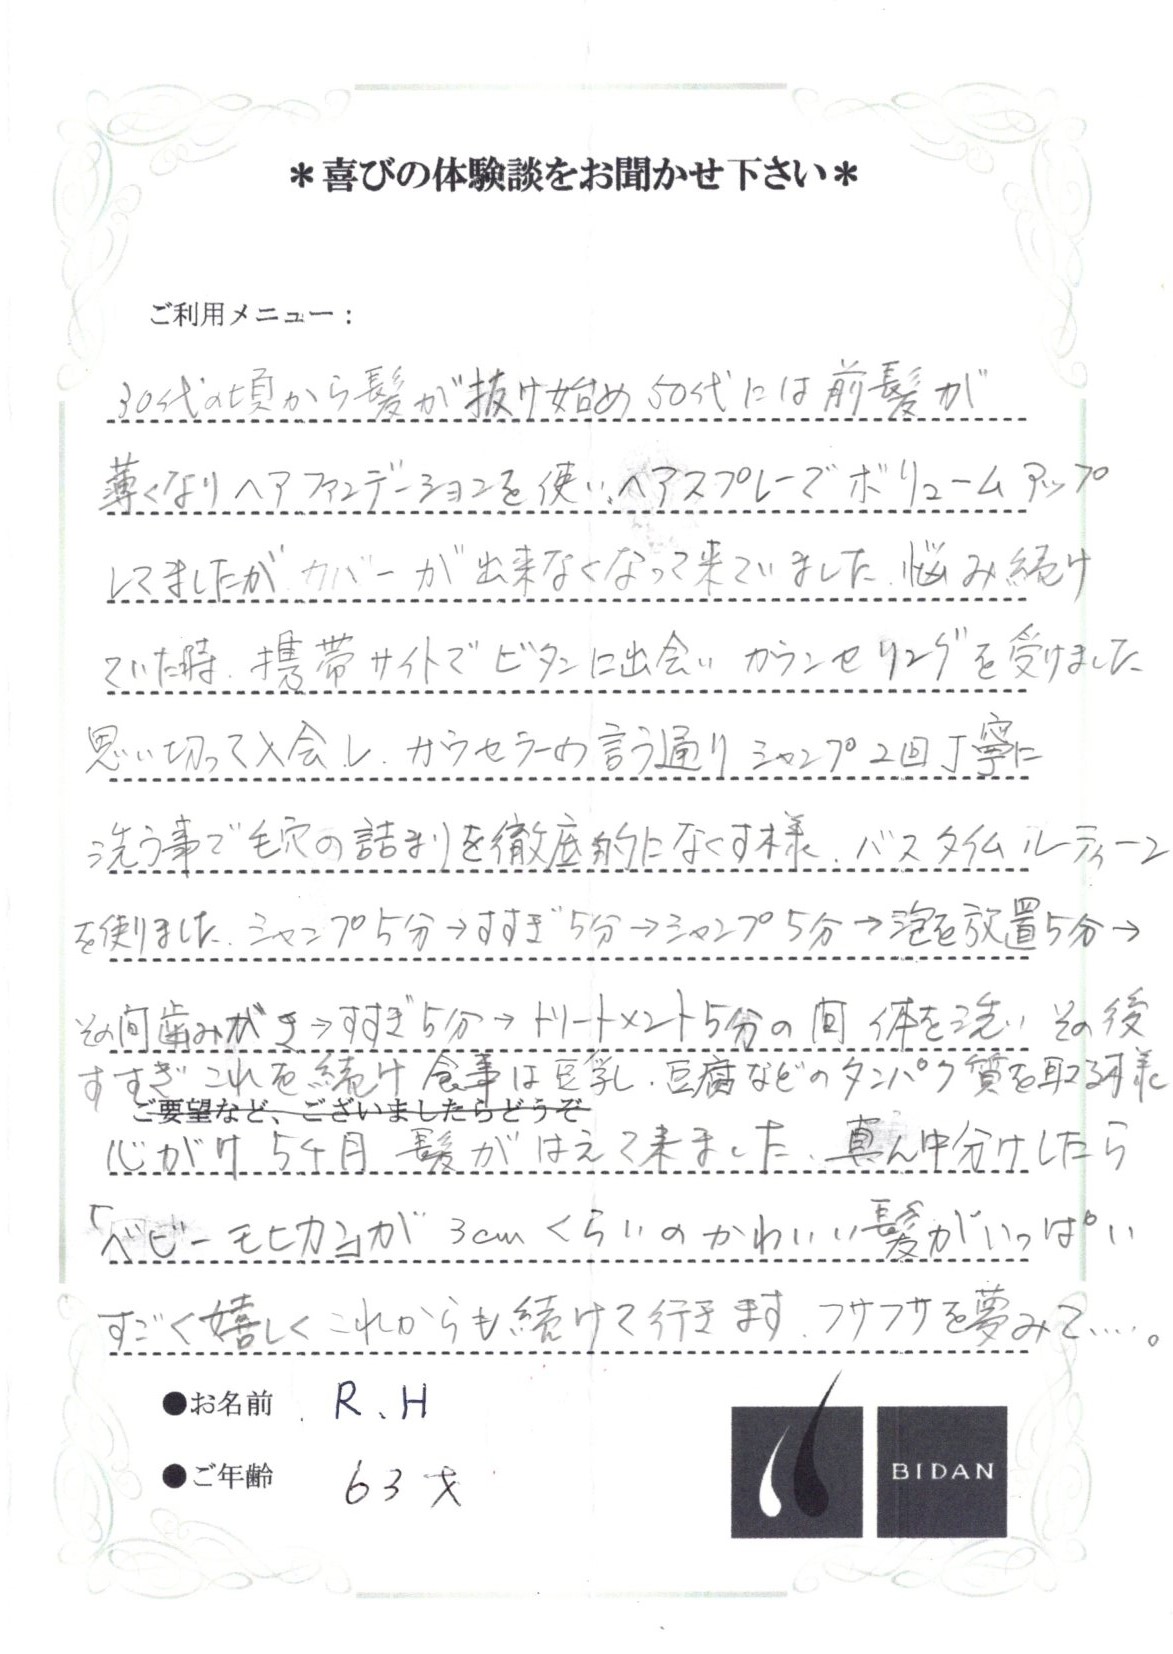 ＊喜びの体験談をお聞かせ下さい＊
ご利用メニュー：
30代の頃から髪が抜け始め50代には前髪が
薄くなりヘアファンデーションを使い、ヘアスプレーでボリュームアップ
してましたがカバーが出来なくなって来ていました、悩み続け
ていた時、携帯サイトでビタンに出会いカウンセリングを受けました
思い切って入会し、カウセラーの言う通りシャンプ2回丁寧に
洗う事で毛穴の詰まりを徹底的になくす様、バスタイムルーティーン
を作りました、シャンプ5分→すすぎ5分→シャンプ5分→泡を放置5分→
その間歯みがき→すすぎ5分→トリートメント5分の間体を洗いその後
すすぎこれを続け食事は豆乳、豆腐などのタンパク質を取る様
ご要望など、ございましたらどうぞ
心がけ5ヶ月髪がはえて来ました、真ん中分けしたら
「ベビーモヒカン」が3cmくらいのかわいい髪がいっぱい
すごく嬉しくこれからも続けて行きます、フサフサを夢みて……。
●お名前 R.H
●ご年齢 63才
BIDAN